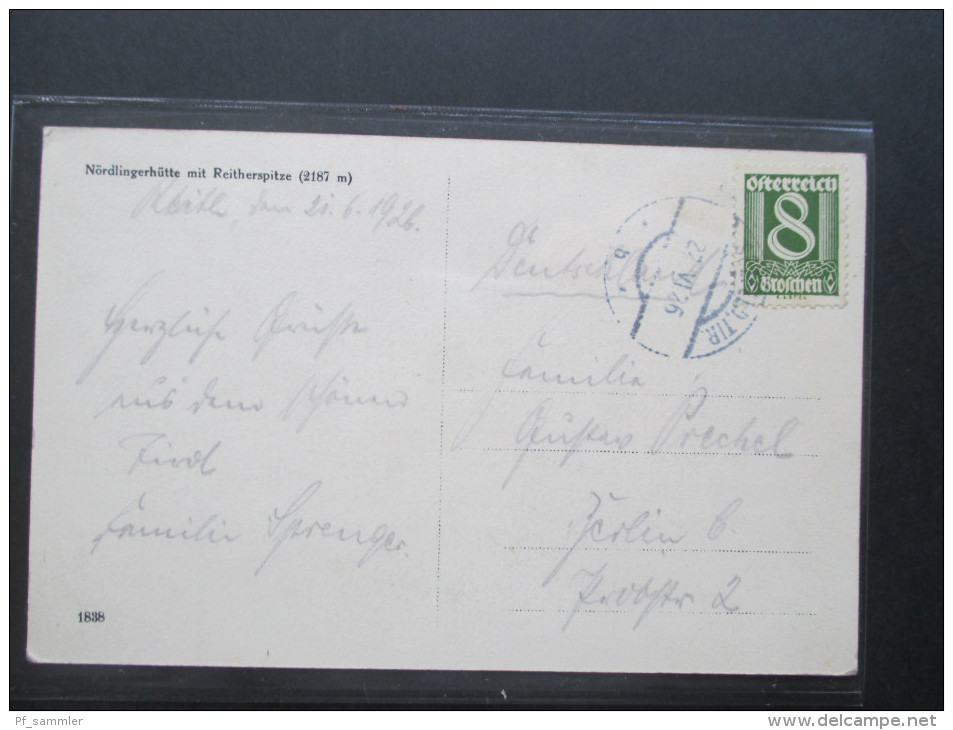 Nördlingerhütte mit Reitherspitze (2187 m)
Reith, den 21.6.1926.
Herzliche Grüße
aus dem schönen
Tirol
Familie Sprenger.
1838
Österreich
8
Groschen
22.VI.26
TIR.
b
Deutschland
Familie
Gustav Prechel
Berlin C.
Probstr. 2
Pf_sammler
www.delcampe.net